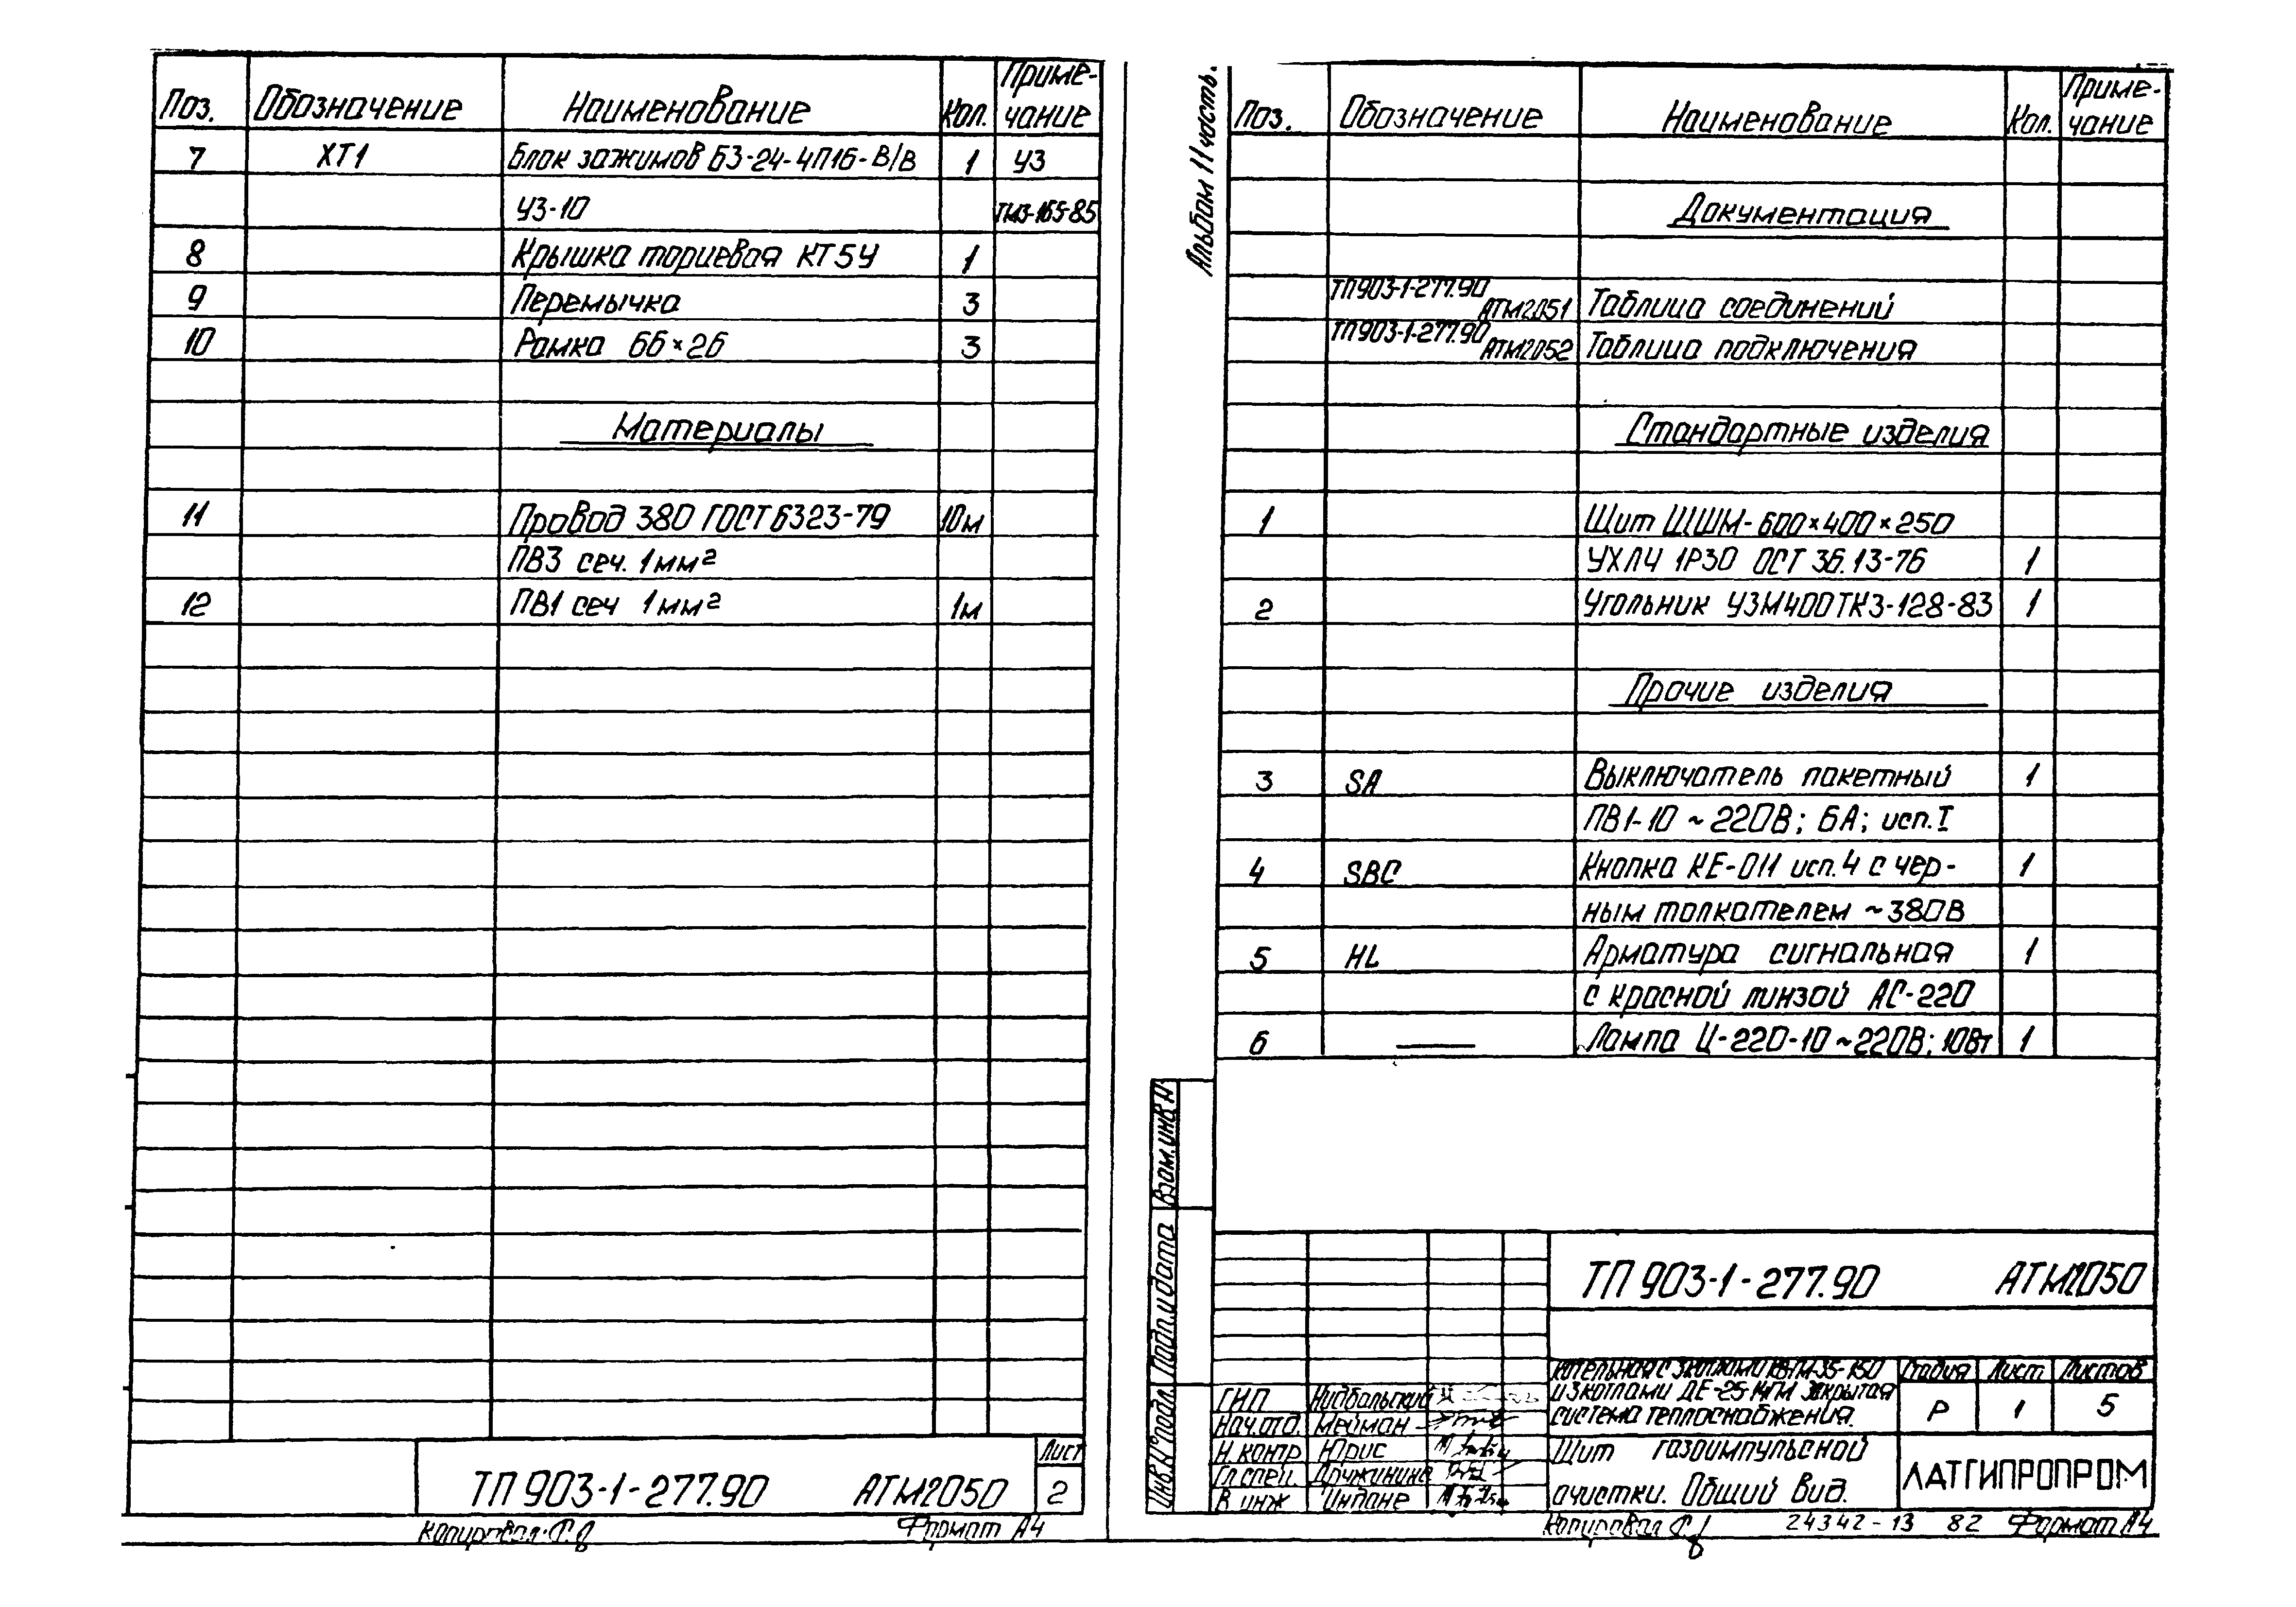 Поз. Обозначение Наименование Кол. Приме-
чание
7 ХТ1 Блок зажимов БЗ-24-4П16-В/В 1 У3
У3-10 ТМ3-165-85
8 Крышка торцевая КТ5У 1
9 Перемычка 3
10 Рамка 66×26 3
Материалы
11 Провод 380 ГОСТ 6323-79 10м
ПВ3 сеч. 1мм²
12 ПВ1 сеч 1мм² 1м
Лист
ТП 903-1-277.90 АТМ2050 2
Копировал Формат А4
Альбом 11 часть.
Поз. Обозначение Наименование Кол. Приме-
чание
Документация
ТП903-1-277.90
АТМ2051 Таблица соединений
ТП903-1-277.90
АТМ2052 Таблица подключения
Стандартные изделия
1 Щит ЩШМ-600×400×250
УХЛ4 1Р30 ОСТ 36.13-76 1
2 Угольник УЗМ400ТК3-128-83 1
Прочие изделия
3 SA Выключатель пакетный 1
ПВ1-10 ~220В; 6А; исп. I
4 SBC Кнопка КЕ-011 исп. 4 с чер- 1
ным толкателем ~380В
5 HL Арматура сигнальная 1
с красной линзой АС-220
6 — Лампа Ц-220-10 ~220В; 10Вт 1
Взам. инв. №
Подп. и дата
Инв. № подл.
ТП 903-1-277.90 АТМ2050
Котельная с 3 котлами КВ-ГМ-35-150
и 3 котлами ДЕ-25-14ГМ Закрытая
система теплоснабжения.
Стадия Лист Листов
Р 1 5
ГИП Нидбальский
Нач. отд. Мейман
Н. контр Юрис
Гл. спец. Дружинина
В инж Индане
Щит газоимпульсной
очистки. Общий вид.
ЛАТГИПРОПРОМ
Копировал 24342-13 82 Формат А4